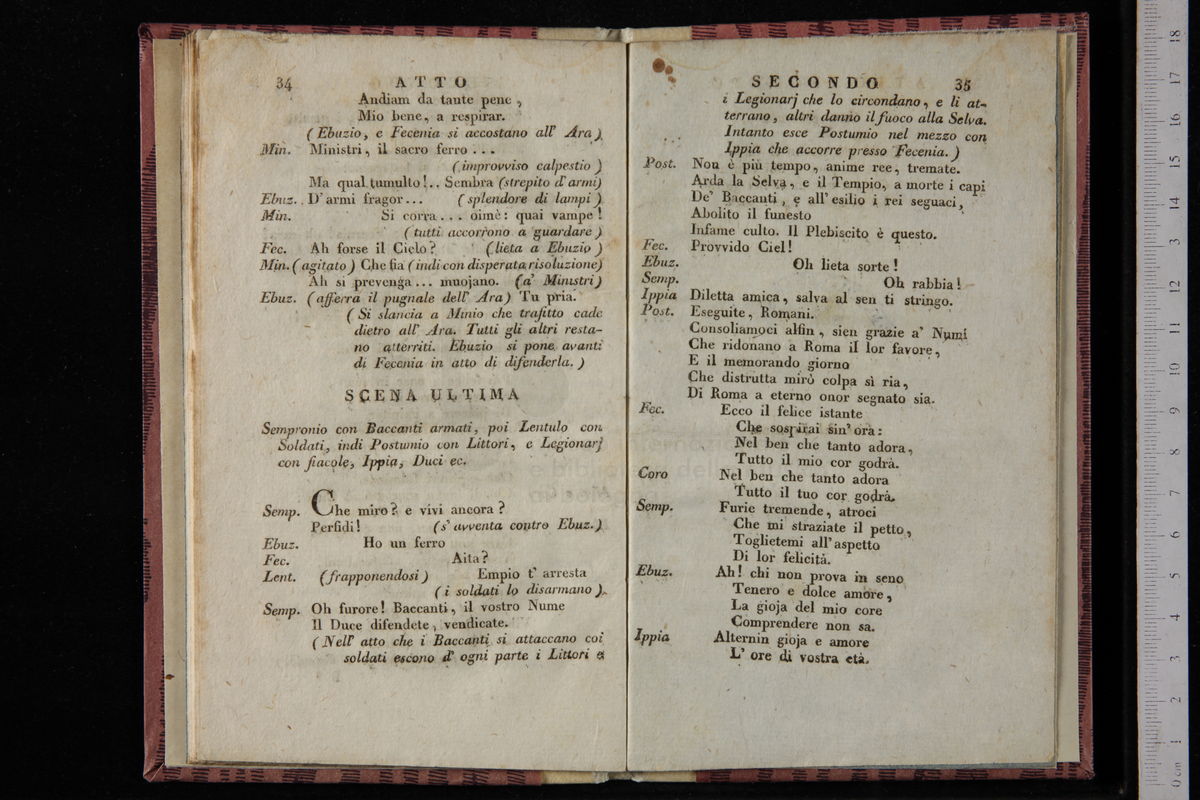 34 ATTO
Andiam da tante pene,
Mio bene, a respirar.
(Ebuzio, e Fecenia si accostano all' Ara)
Min. Ministri, il sacro ferro...
(improvviso calpestio)
Ma qual tumulto!.. Sembra (strepito d'armi)
Ebuz. D'armi fragor... (splendore di lampi)
Min. Si corra... oimè: quai vampe!
(tutti accorrono a guardare)
Fec. Ah forse il Cielo? (lieta a Ebuzio)
Min. (agitato) Che fia (indi con disperata risoluzione)
Ah si prevenga... muojano. (a' Ministri)
Ebuz. (afferra il pugnale dell' Ara) Tu pria.
(Si slancia a Minio che trafitto cade
dietro all' Ara. Tutti gli altri resta-
no atterriti. Ebuzio si pone avanti
di Fecenia in atto di difenderla.)
SCENA ULTIMA
Sempronio con Baccanti armati, poi Lentulo con
Soldati, indi Postumio con Littori, e Legionarj
con fiacole, Ippia, Duci ec.
Semp. Che miro? e vivi ancora?
Perfidi! (s' avventa contro Ebuz.)
Ebuz. Ho un ferro
Fec. Aita?
Lent. (frapponendosi) Empio t' arresta
(i soldati lo disarmano).
Semp. Oh furore! Baccanti, il vostro Nume
Il Duce difendete, vendicate.
(Nell' atto che i Baccanti si attaccano coi
soldati escono d' ogni parte i Littori e
SECONDO 35
i Legionarj che lo circondano, e li at-
terrano, altri danno il fuoco alla Selva.
Intanto esce Postumio nel mezzo con
Ippia che accorre presso Fecenia.)
Post. Non è più tempo, anime ree, tremate.
Arda la Selva, e il Tempio, a morte i capi
De' Baccanti, e all' esilio i rei seguaci,
Abolito il funesto
Infame culto. Il Plebiscito è questo.
Fec. Provvido Ciel!
Ebuz. Oh lieta sorte!
Semp. Oh rabbia!
Ippia Diletta amica, salva al sen ti stringo.
Post. Eseguite, Romani.
Consoliamoci alfin, sien grazie a' Numi
Che ridonano a Roma il lor favore,
E il memorando giorno
Che distrutta mirò colpa sì ria,
Di Roma a eterno onor segnato sia.
Fec. Ecco il felice istante
Che sospirai sin' ora:
Nel ben che tanto adora,
Tutto il mio cor godrà.
Coro Nel ben che tanto adora
Tutto il tuo cor godrà.
Semp. Furie tremende, atroci
Che mi straziate il petto,
Toglietemi all' aspetto
Di lor felicità.
Ebuz. Ah! chi non prova in seno
Tenero e dolce amore,
La gioja del mio core
Comprendere non sa.
Ippia Alternin gioja e amore
L' ore di vostra età.